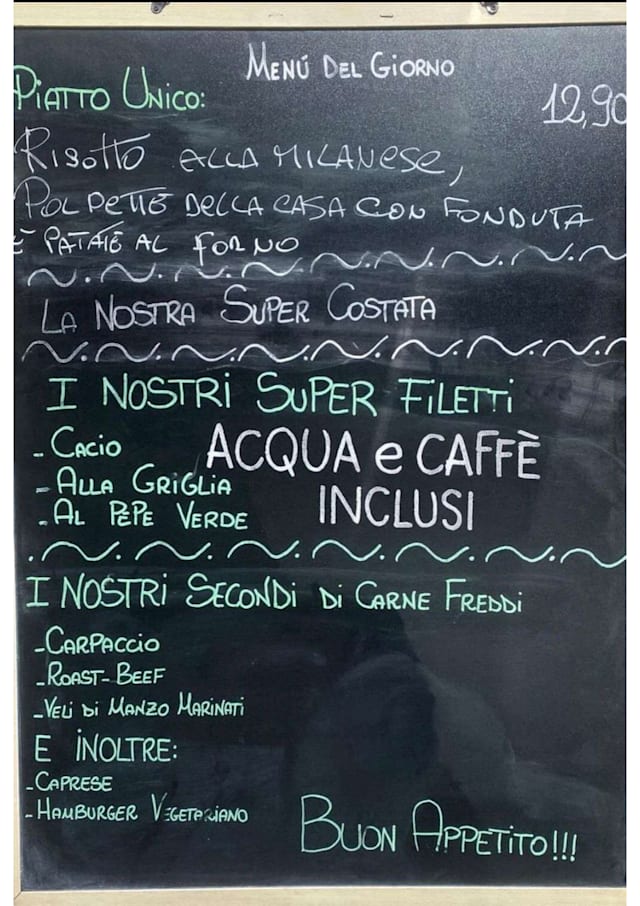 MENÚ DEL GIORNO
PIATTO UNICO: 12,90
RISOTTO ALLA MILANESE,
POLPETTE DELLA CASA CON FONDUTA
E PATATE AL FORNO
LA NOSTRA SUPER COSTATA
I NOSTRI SUPER FILETTI
- CACIO
- ALLA GRIGLIA
- AL PEPE VERDE
ACQUA e CAFFÈ
INCLUSI
I NOSTRI SECONDI DI CARNE FREDDI
- CARPACCIO
- ROAST-BEEF
- VELI DI MANZO MARINATI
E INOLTRE:
- CAPRESE
- HAMBURGER VEGETARIANO
BUON APPETITO!!!